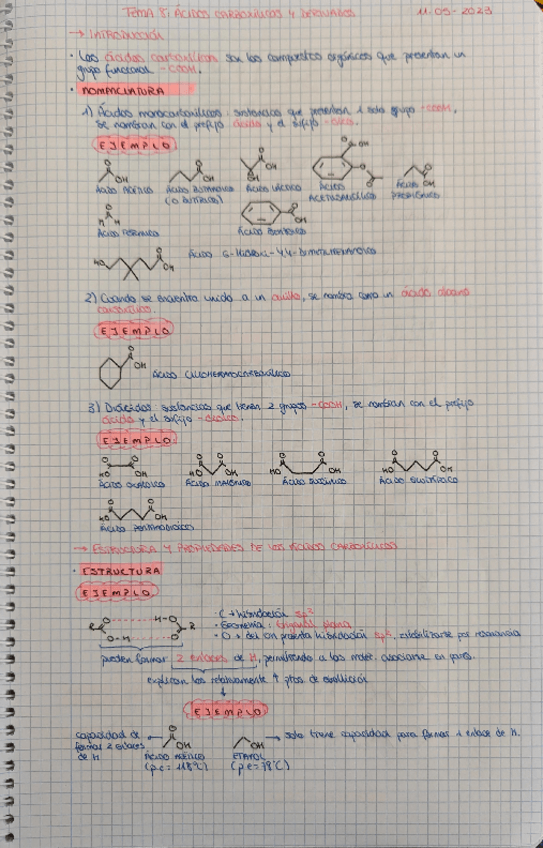 TEMA 8: ÁCIDOS CARBOXÍLICOS Y DERIVADOS 11-05-2023
→ INTRODUCCIÓN
· Los ácidos carboxílicos son los compuestos orgánicos que presentan un
grupo funcional -COOH.
· NOMENCLATURA
1) Ácidos monocarboxílicos: sustancias que presentan 1 solo grupo -COOH,
se nombran con el prefijo ácido y el sufijo -oico.
EJEMPLO
OH O OH
ÁCIDO ACÉTICO ÁCIDO BUTANOICO ÁCIDO LÁCTICO ÁCIDO ÁCIDO
(O BUTÍRICO) ACETILSALICÍLICO PROPIÓNICO
ÁCIDO FÓRMICO ÁCIDO BENZOICO
HO OH ÁCIDO 6-HIDROXI-4,4-DIMETILHEXANOICO
2) Cuando se encuentra unido a un anillo, se nombra como un ácido alcano
carboxílico.
EJEMPLO
OH ÁCIDO CICLOHEXANOCARBOXÍLICO
3) Diácidos: sustancias que tienen 2 grupos -COOH, se nombran con el prefijo
ácido y el sufijo -dioico.
EJEMPLO
HO OH HO OH HO OH HO OH
ÁCIDO OXÁLICO ÁCIDO MALÓNICO ÁCIDO SUCCÍNICO ÁCIDO GLUTÁRICO
HO OH
→ ESTRUCTURA Y PROPIEDADES DE LOS ÁCIDOS CARBOXÍLICOS
· ESTRUCTURA
EJEMPLO
· C → hibridación sp²
· Geometría: trigonal plana
· O → del OH presenta hibridación estabilizarse por resonancia
pueden formar 2 enlaces de H, permitiendo a las moléc. asociarse en pares.
explican los relativamente ↑ ptos. de ebullición
EJEMPLO
capacidad de
formar 2 enlaces
de H
OH OH → solo tiene capacidad para formar 1 enlace de H.
ÁCIDO ACÉTICO ETANOL
(p.e = 118°C) (p.e = 78°C)